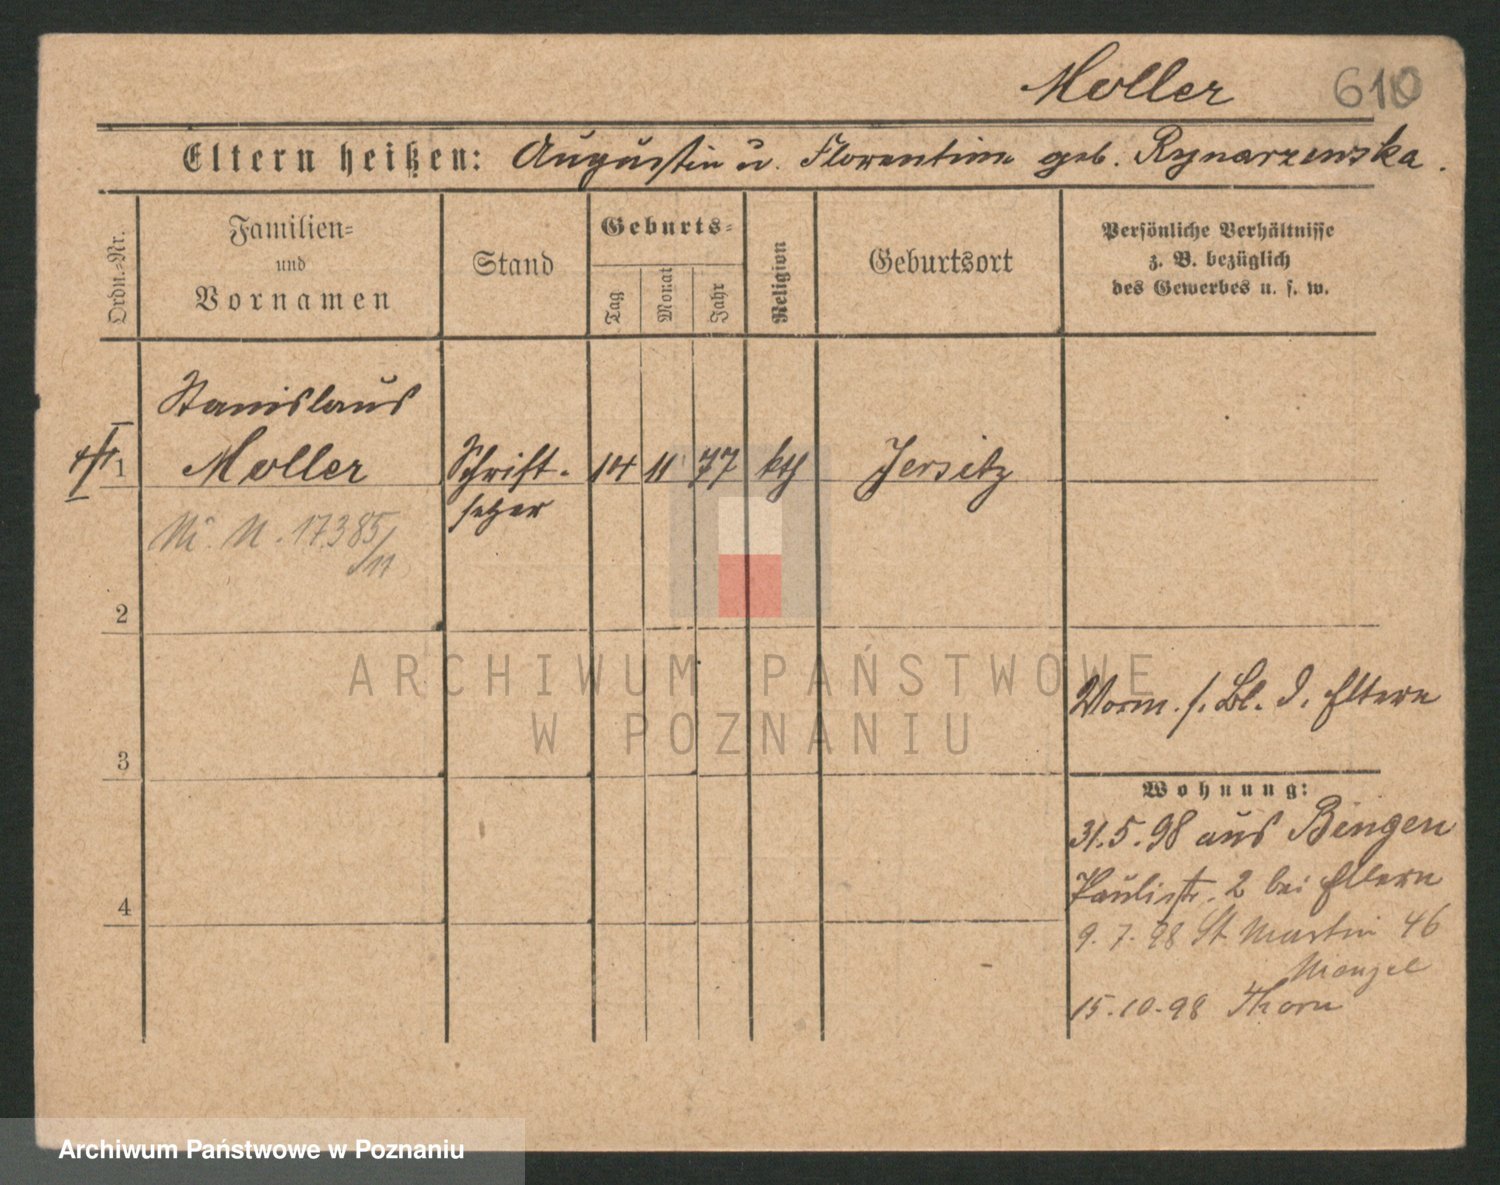 Moller 610
Eltern heißen: Augustin u. Florentine geb. Rynarzewska.
Ordn.-Nr.
Familien-
und
Vornamen
Stand
Geburts-
Tag
Monat
Jahr
Religion
Geburtsort
Persönliche Verhältnisse
z. B. bezüglich
des Gewerbes u. s. w.
Stanislaus
1 Moller Schrift- 14 11 77 kth Jersitz
setzer
N. 17385/11
2
Vorm. s. Bl. d. Eltern
3
Wohnung:
31.5.98 aus Bingen
Paulistr. 2 bei Eltern
4
9.7.98 St Martin 46
Menzel
15.10.98 Thorn
ARCHIWUM PAŃSTWOWE
W POZNANIU
Archiwum Państwowe w Poznaniu